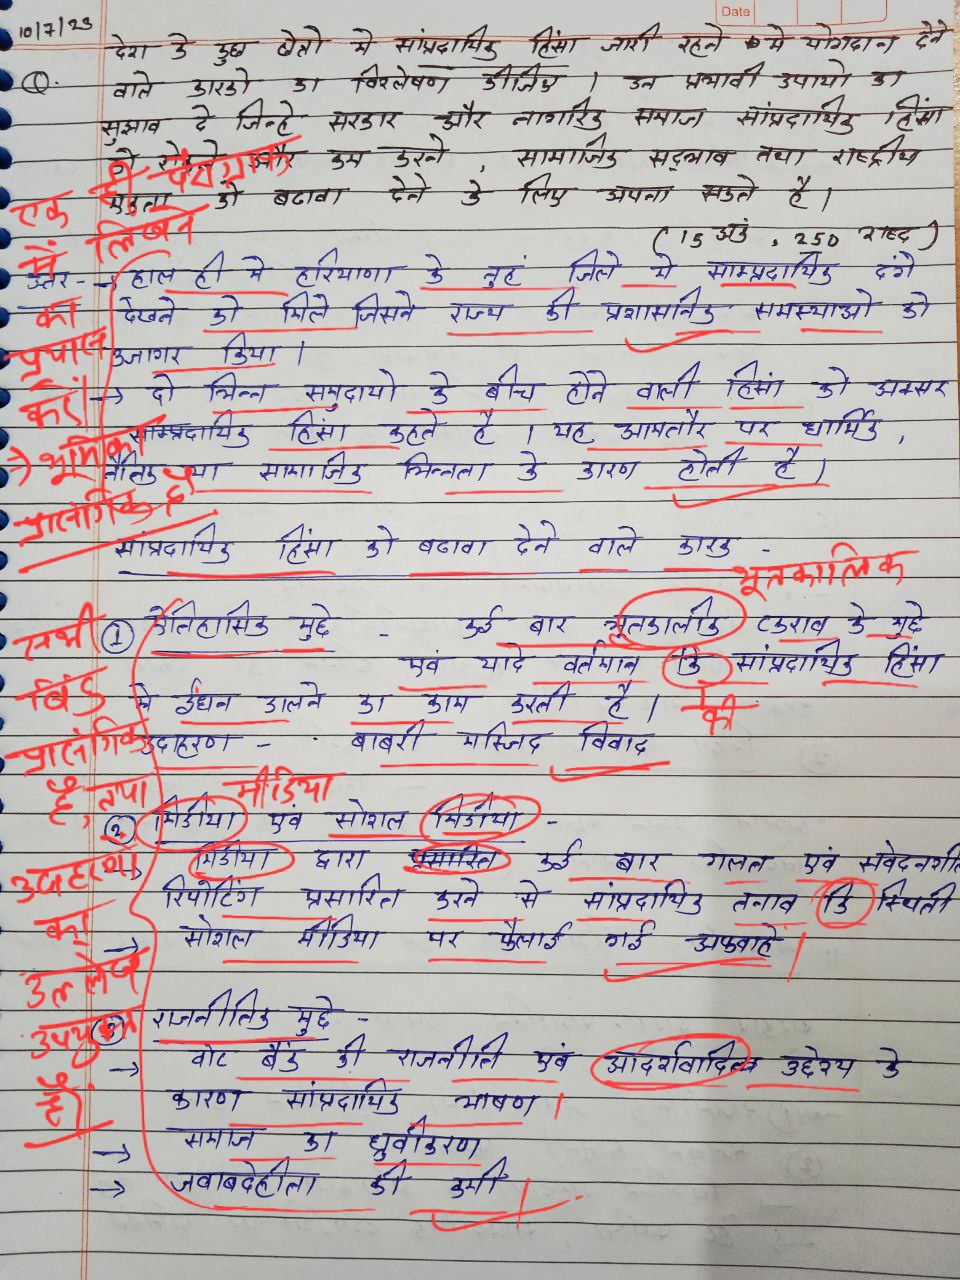 Date
10/7/23
देश के कुछ क्षेत्रो मे सांप्रदायिक हिंसा जारी रहने मे योगदान देने
Q. वाले कारको का विश्लेषण कीजिए । उन प्रभावी उपायो का
सुझाव दे जिन्हे सरकार और नागरिक समाज सांप्रदायिक हिंसा
को रोकने और कम करने , सामाजिक सद्भाव तथा राष्ट्रीय
एकता को बढावा देने के लिए अपना सकते है ।
(15 अंक , 250 शब्द)
एक ही पैराग्राफ
में लिखने
का
प्रयास
करें।
→ भूमिका
प्रासंगिक है
उत्तर - → हाल ही मे हरियाणा के नुहं जिले मे साम्प्रदायिक दंगे
देखने को मिले जिसने राज्य की प्रशासनिक समस्याओ को
उजागर किया ।
→ दो भिन्न समुदायो के बीच होने वाली हिसां को अक्सर
साम्प्रदायिक हिंसा कहते है । यह आमतौर पर धार्मिक ,
नैतिक या सामाजिक भिन्नता के कारण होती है ।
सांप्रदायिक हिंसा को बढावा देने वाले कारक -
भूतकालिक
① ऐतिहासिक मुद्दे - कई बार भूतकालीक टकराव के मुद्दे
एवं यादे वर्तमान कि सांप्रदायिक हिंसा
की
मे ईंधन डालने का काम करती है ।
उदाहरण - बाबरी मस्जिद विवाद
सभी
बिंदु
प्रासंगिक
है, तथा
उदाहरणों
का
उल्लेख
उपयुक्त
है।
मीडिया
② मिडीया एवं सोशल मिडीया -
→ मिडीया द्वारा प्रसारित कई बार गलत एवं संवेदनशील
रिपोर्टिंग प्रसारित करने से सांप्रदायिक तनाव कि स्थिती
→ सोशल मीडिया पर फैलाई गई अफवाहे
③ राजनीतिक मुद्दे -
→ वोट बैंक की राजनीति एवं आदर्शवादिता उद्देश्य के
कारण सांप्रदायिक भाषण ।
→ समाज का ध्रुवीकरण
→ जवाबदेहीता की कमी